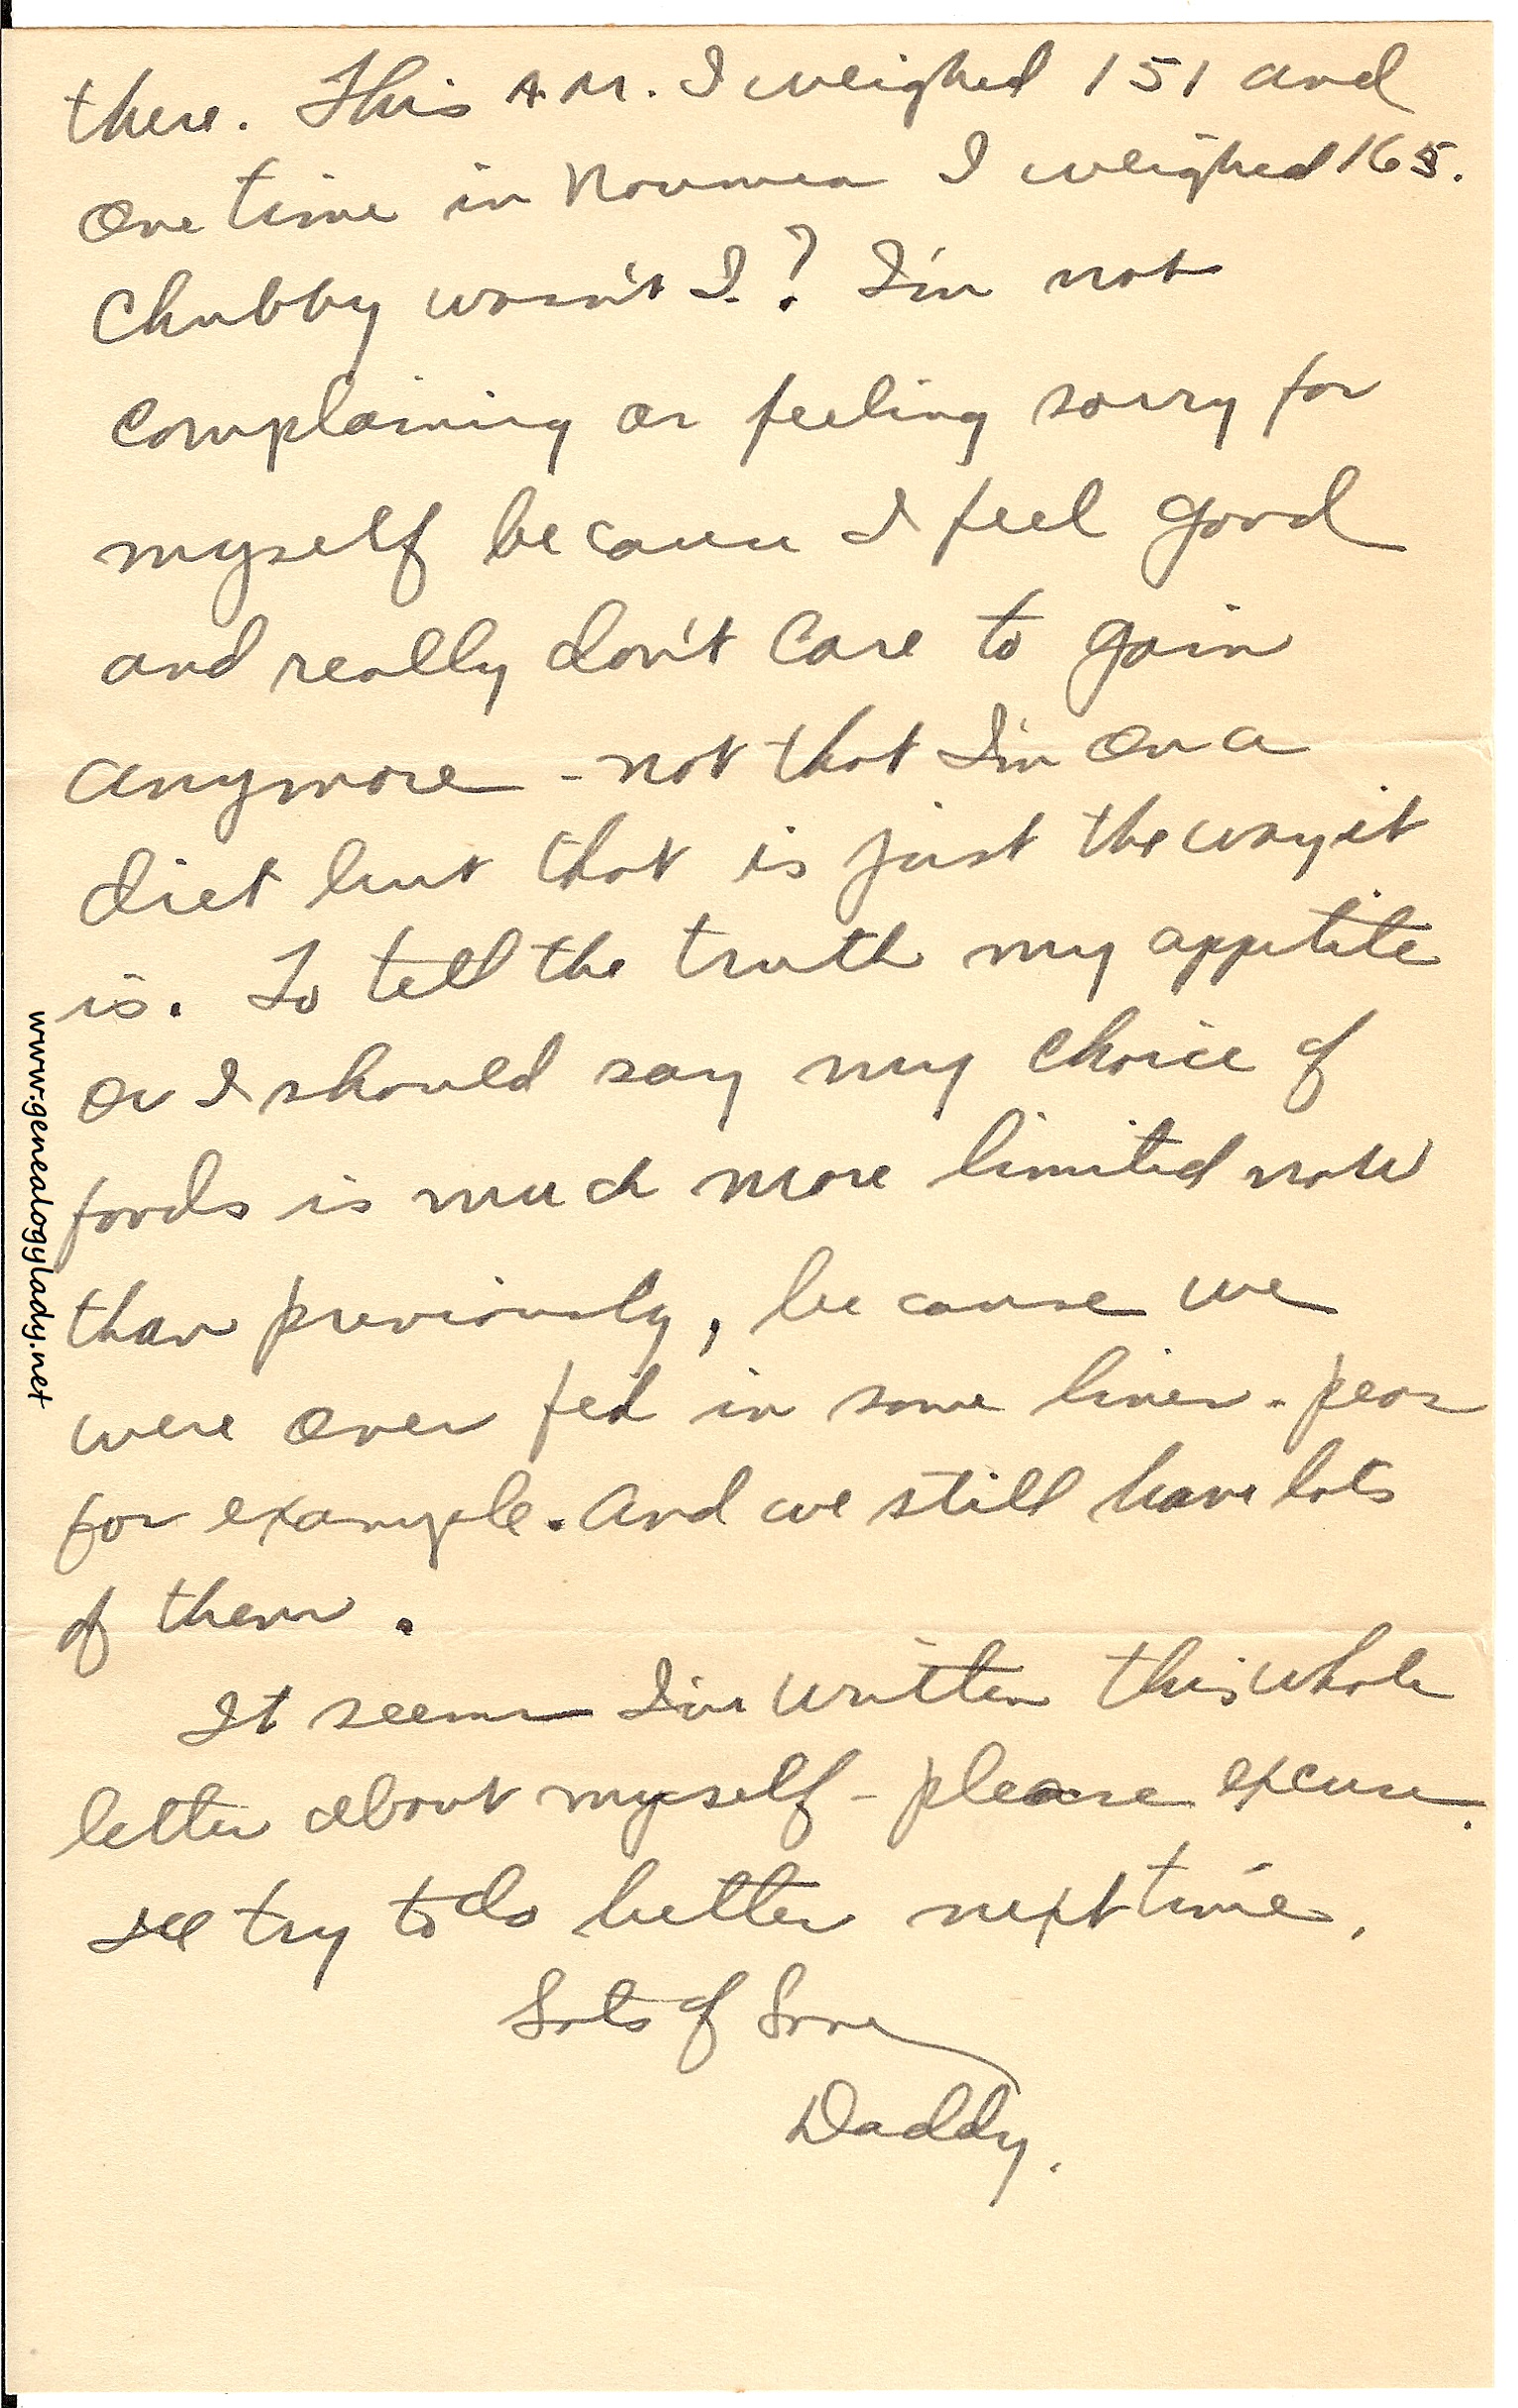 there. This A.M. I weighed 151 and
one time in Noumea I weighed 165.
Chubby wasn't I? I'm not
complaining or feeling sorry for
myself because I feel good
and really don't care to gain
anymore - not that I'm on a
diet but that is just the way it
is. To tell the truth my appetite
or I should say my choice of
foods is much more limited now
than previously, because we
were over fed in some lines - peas
for example. And we still have lots
of them.
It seems I've written this whole
letter about myself - please excuse.
I'll try to do better next time.
Lots of Love
Daddy.
www.genealogylady.net